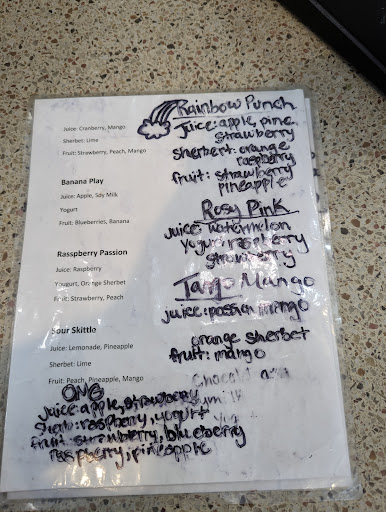 Juice: Cranberry, Mango
Sherbet: Lime
Fruit: Strawberry, Peach, Mango
Banana Play
Juice: Apple, Soy Milk
Yogurt
Fruit: Blueberries, Banana
Rasspberry Passion
Juice: Raspberry
Yougurt, Orange Sherbet
Fruit: Strawberry, Peach
Sour Skittle
Juice: Lemonade, Pineapple
Sherbet: Lime
Fruit: Peach, Pineapple, Mango
OMG
Juice: apple, strawberry
Sherb: raspberry, yogurt
fruit: strawberry, blueberry
raspberry, pineapple
Rainbow Punch
Juice: apple, pine
strawberry
Sherbert: orange
raspberry
fruit: strawberry
pineapple
Rosy Pink
juice: watermelon
yogurt raspberry
strawberry
Tango Mango
juice: passion mango
orange sherbet
fruit: mango